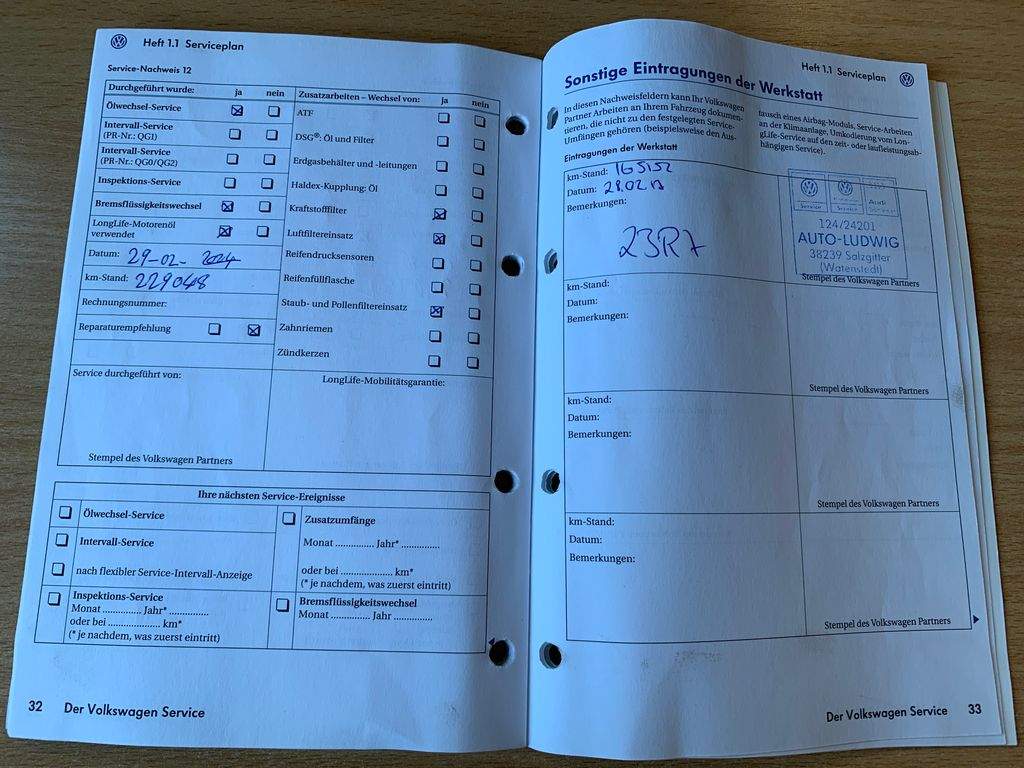 Heft 1.1 Serviceplan
Service-Nachweis 12
Durchgeführt wurde: ja nein
Ölwechsel-Service
Intervall-Service
(PR-Nr.: QG1)
Intervall-Service
(PR-Nr.: QG0/QG2)
Inspektions-Service
Bremsflüssigkeitswechsel
LongLife-Motorenöl
verwendet
Datum: 29-02-2024
km-Stand: 229048
Rechnungsnummer:
Reparaturempfehlung
Zusatzarbeiten – Wechsel von: ja nein
ATF
DSG®: Öl und Filter
Erdgasbehälter und -leitungen
Haldex-Kupplung: Öl
Kraftstofffilter
Luftfiltereinsatz
Reifendrucksensoren
Reifenfüllflasche
Staub- und Pollenfiltereinsatz
Zahnriemen
Zündkerzen
Service durchgeführt von:
Stempel des Volkswagen Partners
LongLife-Mobilitätsgarantie:
Ihre nächsten Service-Ereignisse
Ölwechsel-Service
Intervall-Service
nach flexibler Service-Intervall-Anzeige
Inspektions-Service
Monat ............... Jahr* ...............
oder bei .................... km*
(* je nachdem, was zuerst eintritt)
Zusatzumfänge
Monat ............... Jahr* ...............
oder bei .................... km*
(* je nachdem, was zuerst eintritt)
Bremsflüssigkeitswechsel
Monat ............... Jahr ...............
32 Der Volkswagen Service
Heft 1.1 Serviceplan
Sonstige Eintragungen der Werkstatt
In diesen Nachweisfeldern kann Ihr Volkswagen
Partner Arbeiten an Ihrem Fahrzeug dokumen-
tieren, die nicht zu den festgelegten Service-
Umfängen gehören (beispielsweise den Aus-
tausch eines Airbag-Moduls, Service-Arbeiten
an der Klimaanlage, Umkodierung vom Lon-
gLife-Service auf den zeit- oder laufleistungsab-
hängigen Service).
Eintragungen der Werkstatt
km-Stand: 165152
Datum: 28.02
Bemerkungen:
23R7
Service
Service
Audi
Service
124/24201
AUTO-LUDWIG
38239 Salzgitter
(Watenstedt)
Stempel des Volkswagen Partners
km-Stand:
Datum:
Bemerkungen:
Stempel des Volkswagen Partners
km-Stand:
Datum:
Bemerkungen:
Stempel des Volkswagen Partners
km-Stand:
Datum:
Bemerkungen:
Stempel des Volkswagen Partners
Der Volkswagen Service 33